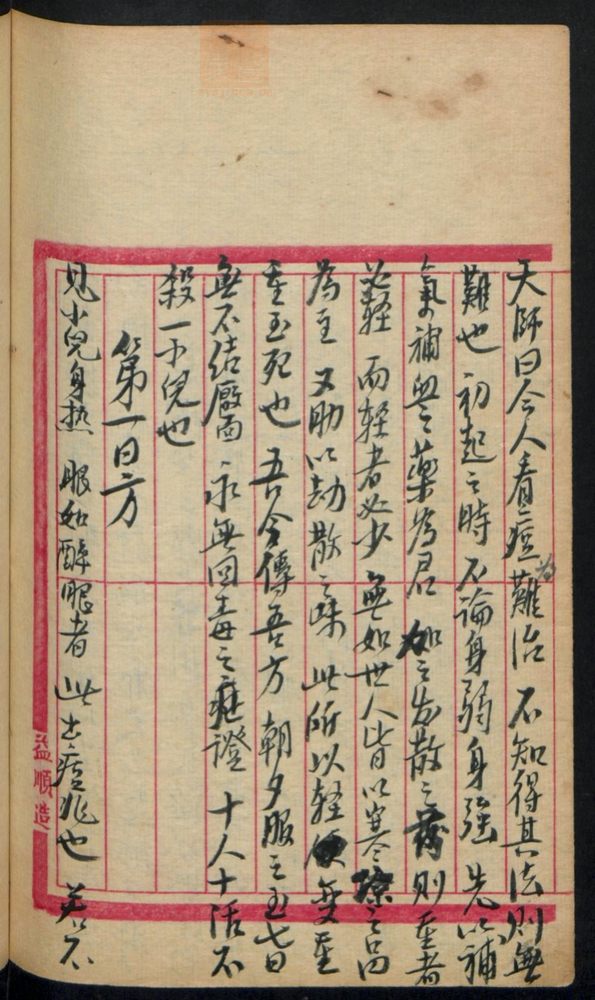 天師曰今人看痘為難治不知得其法則無
難也初起之時不論身弱身強先以補
氣補血之藥為君加之发散之药則重者
必輕而輕者必少無如世人皆以寒涼之品
為主又助以劫散之味此所以輕變重
重至死也吾今傳吾方朝夕服之至七日
無不結靨而永無回毒之症證十人十活不
殺一小兒也
第一日方
見小兒身热眼如醉眼者此出痘兆也若不
益順造